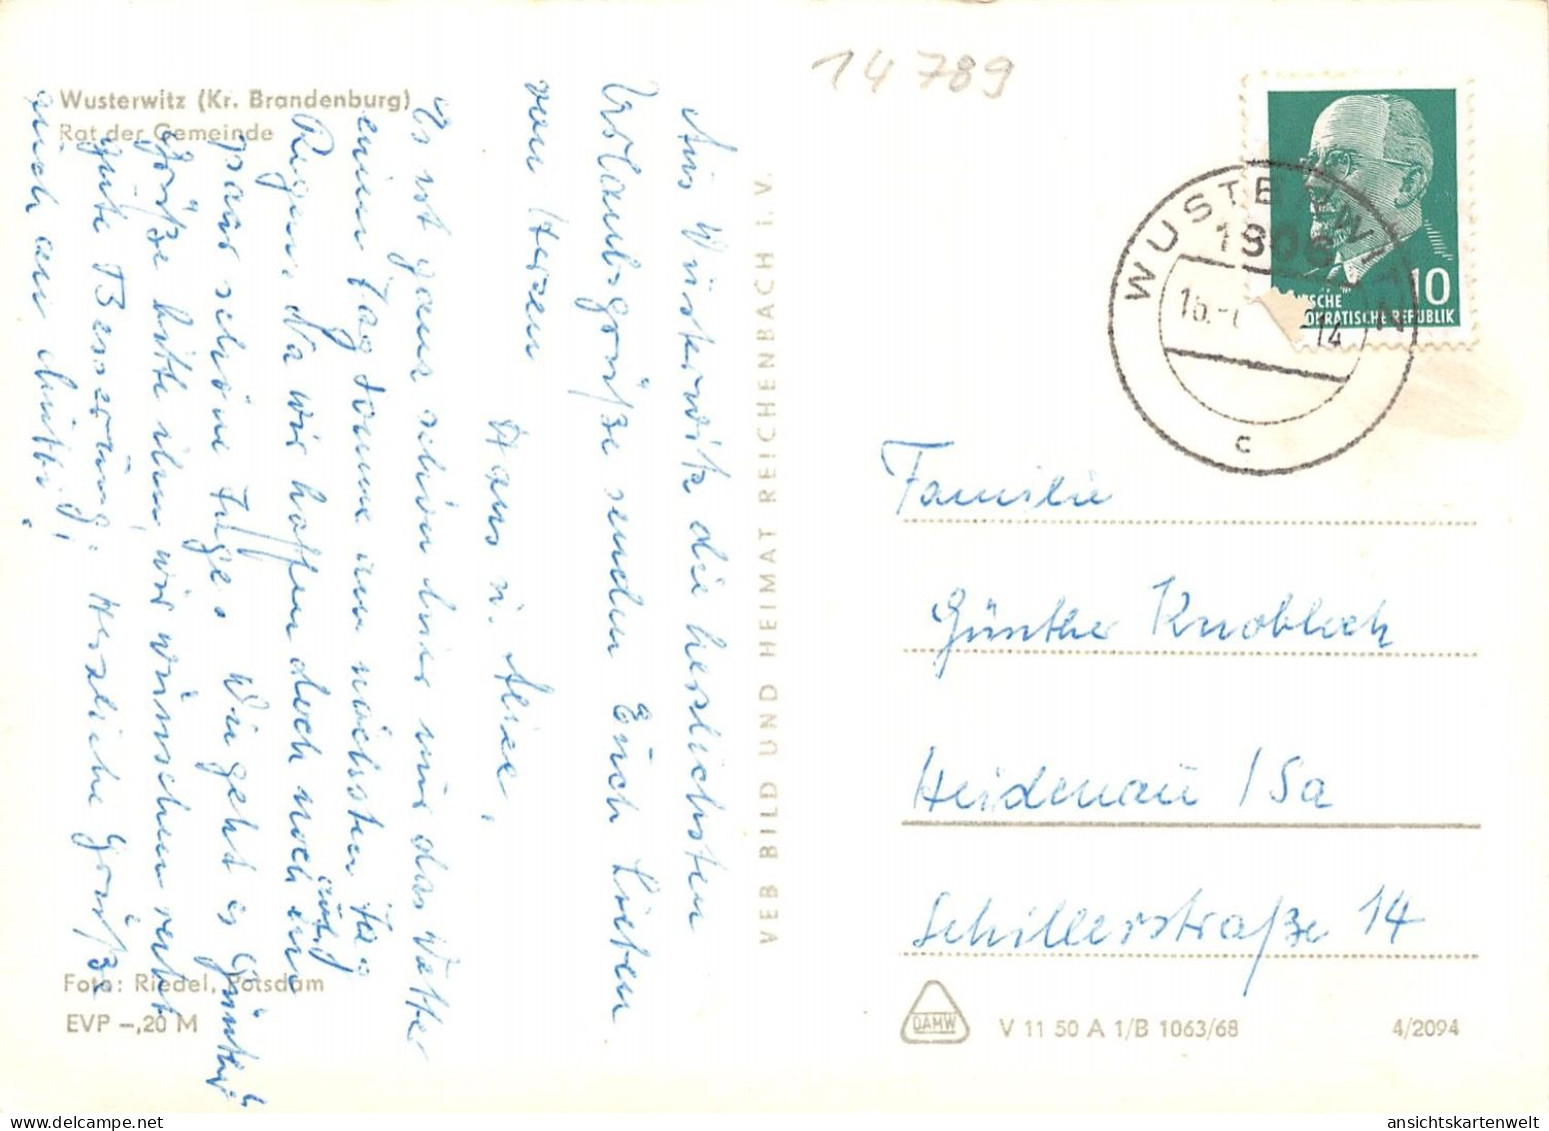 14789
Wusterwitz (Kr. Brandenburg)
Rat der Gemeinde
Aus Wusterwitz die herzlichsten
Urlaubsgrüße senden Euch Lieben
von Herzen
Hans u.
Es ist ganz schön hier nur das Wetter
einen Tag Sonne am nächsten Tag
Regen. Na wir hoffen doch noch auf
paar schöne Tage. Wie geht es Günther
Grüße bitte ihn, wir wünschen recht
gute Besserung. Herzliche Grüße
auch an Mutti.
Foto: Riedel, Potsdam
EVP –,20 M
VEB BILD UND HEIMAT REICHENBACH i. V.
10
DEUTSCHE
DEMOKRATISCHE REPUBLIK
WUSTERWITZ
1806
14
c
Familie
Günther Knobloch
Heidenau / Sa
Schillerstraße 14
DAMW
V 11 50 A 1/B 1063/68
4/2094
ansichtskartenwelt.de